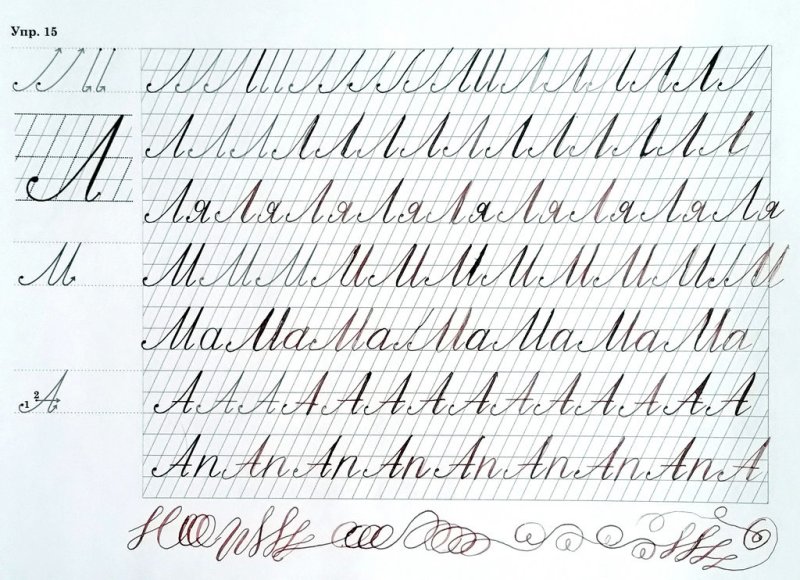 Упр. 15
Л Л Л Л Л Л Л Л Л Л Л Л Л Л Л
Ля Ля Ля Ля Ля Ля Ля Ля Ля
М М М М М М М М М М М М
Ма Ма Ма Ма Ма Ма Ма
1 2 А А А А А А А А А А А А А А А
Ап Ап Ап Ап Ап Ап Ап Ап А